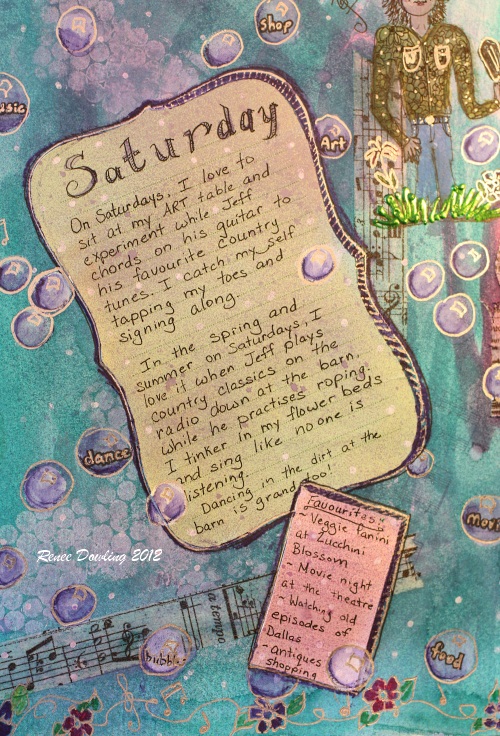 shop
music
Art
Saturday
On Saturdays, I love to
sit at my ART table and
experiment while Jeff
chords on his guitar to
his favourite country
tunes. I catch my self
tapping my toes and
signing along.
In the spring and
summer on Saturdays, I
love it when Jeff plays
country classics on the
radio down at the barn,
while he practises roping.
I tinker in my flower beds
and sing like no one is
listening.
Dancing in the dirt at the
barn is grand too!
dance
Favourites:
~ Veggie Panini
at Zucchini
Blossom
~ Movie night
at the theatre
~ Watching old
episodes of
Dallas
~ antiques
shopping
Renee Dowling 2012
a tempo
bubble
food